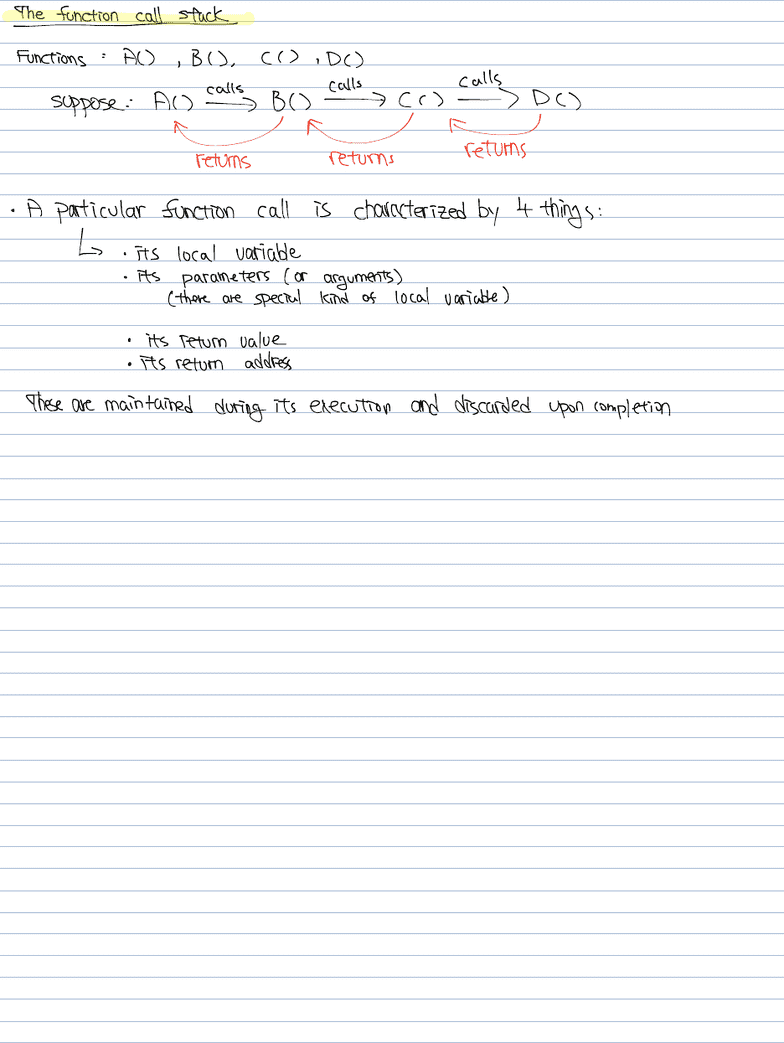 The function call stack
Functions : A() , B(), C() , D()
calls calls calls
suppose: A() → B() → C() → D()
returns returns returns
• A particular function call is characterized by 4 things:
↳ • its local variable
• its parameters (or arguments)
(there are special kind of local variable)
• its return value
• its return address
These are maintained during its execution and discarded upon completion